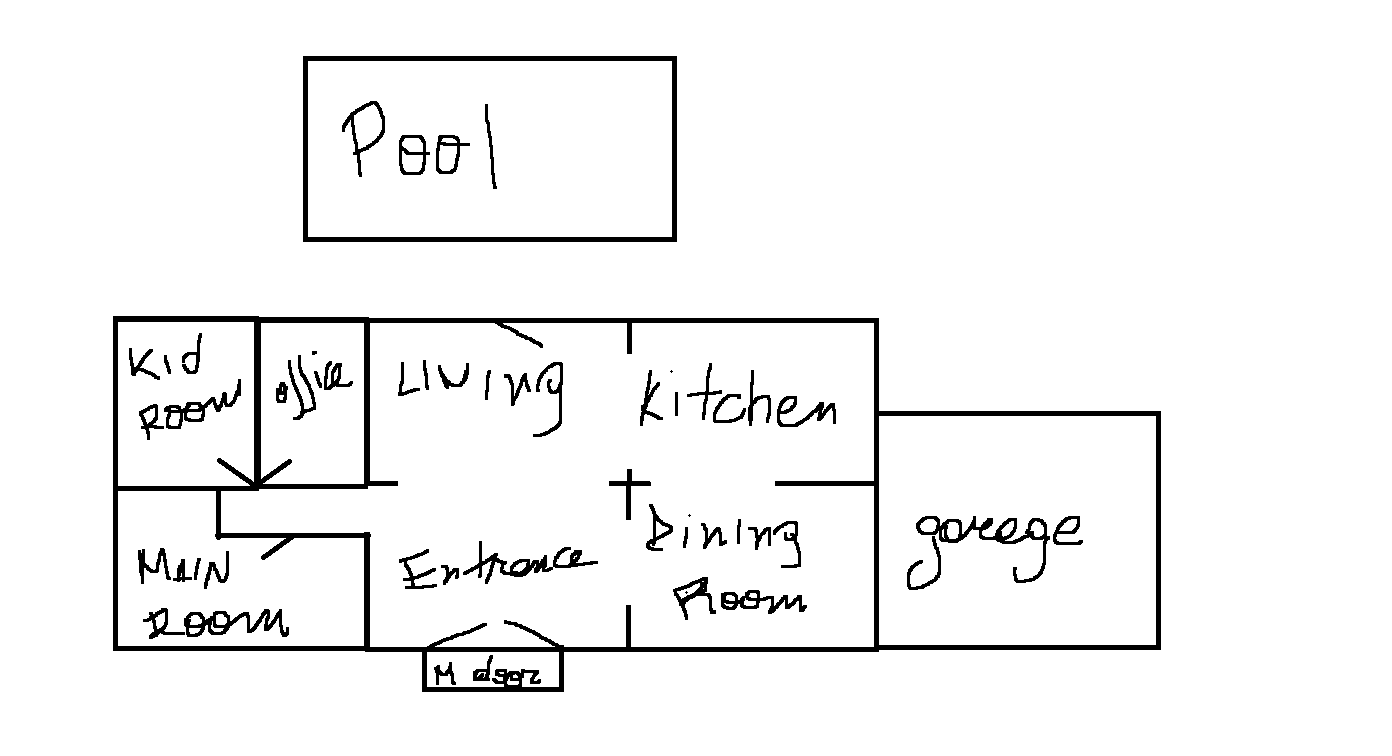 Pool
Kid
Room
office
Living
Kitchen
Main
Room
Entrance
Dining
Room
garege
M door